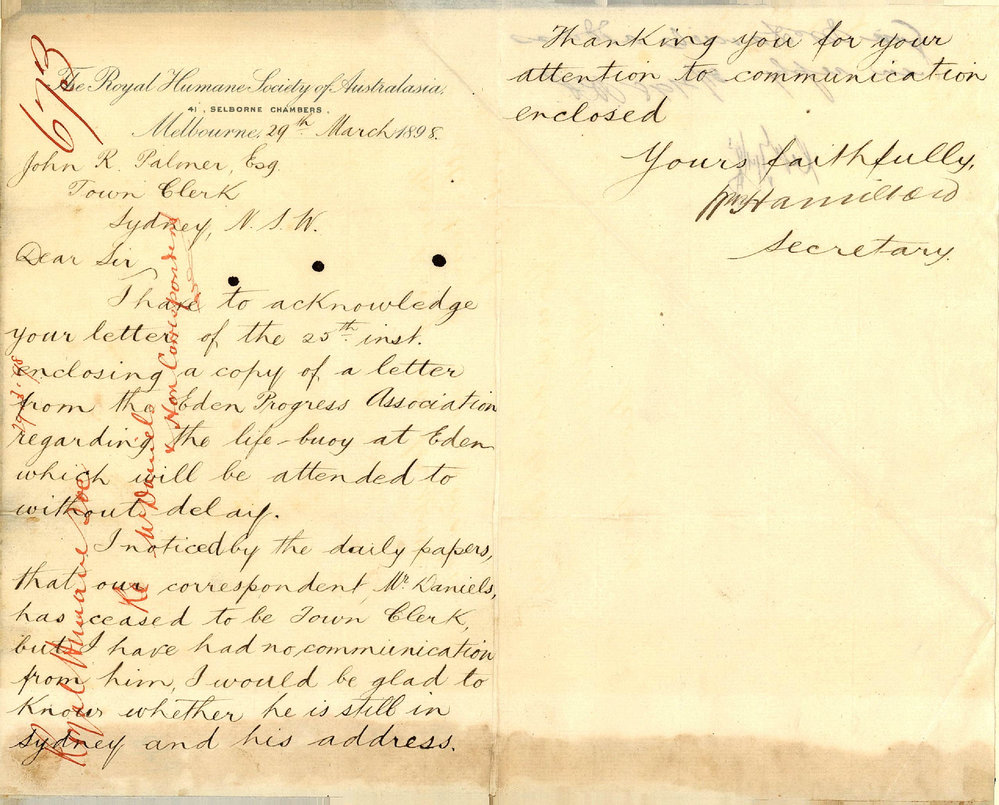 673
The Royal Humane Society of Australasia.
41, SELBORNE CHAMBERS.
Melbourne, 29th March 1898.
John R. Palmer, Esq.
Town Clerk
Sydney, N.S.W.
Dear Sir,
I have to acknowledge
your letter of the 25th inst.
enclosing a copy of a letter
from the Eden Progress Association
regarding the life-buoy at Eden
which will be attended to
without delay.
I noticed by the daily papers,
that our correspondent, Mr. Daniels,
has ceased to be Town Clerk,
but I have had no communication
from him, I would be glad to
know whether he is still in
Sydney and his address.
Royal Humane Soc
Re Mr Daniels
& Hon Correspondent
29.3.98
Thanking you for your
attention to communication
enclosed
Yours faithfully,
Wm Hamilton
Secretary.